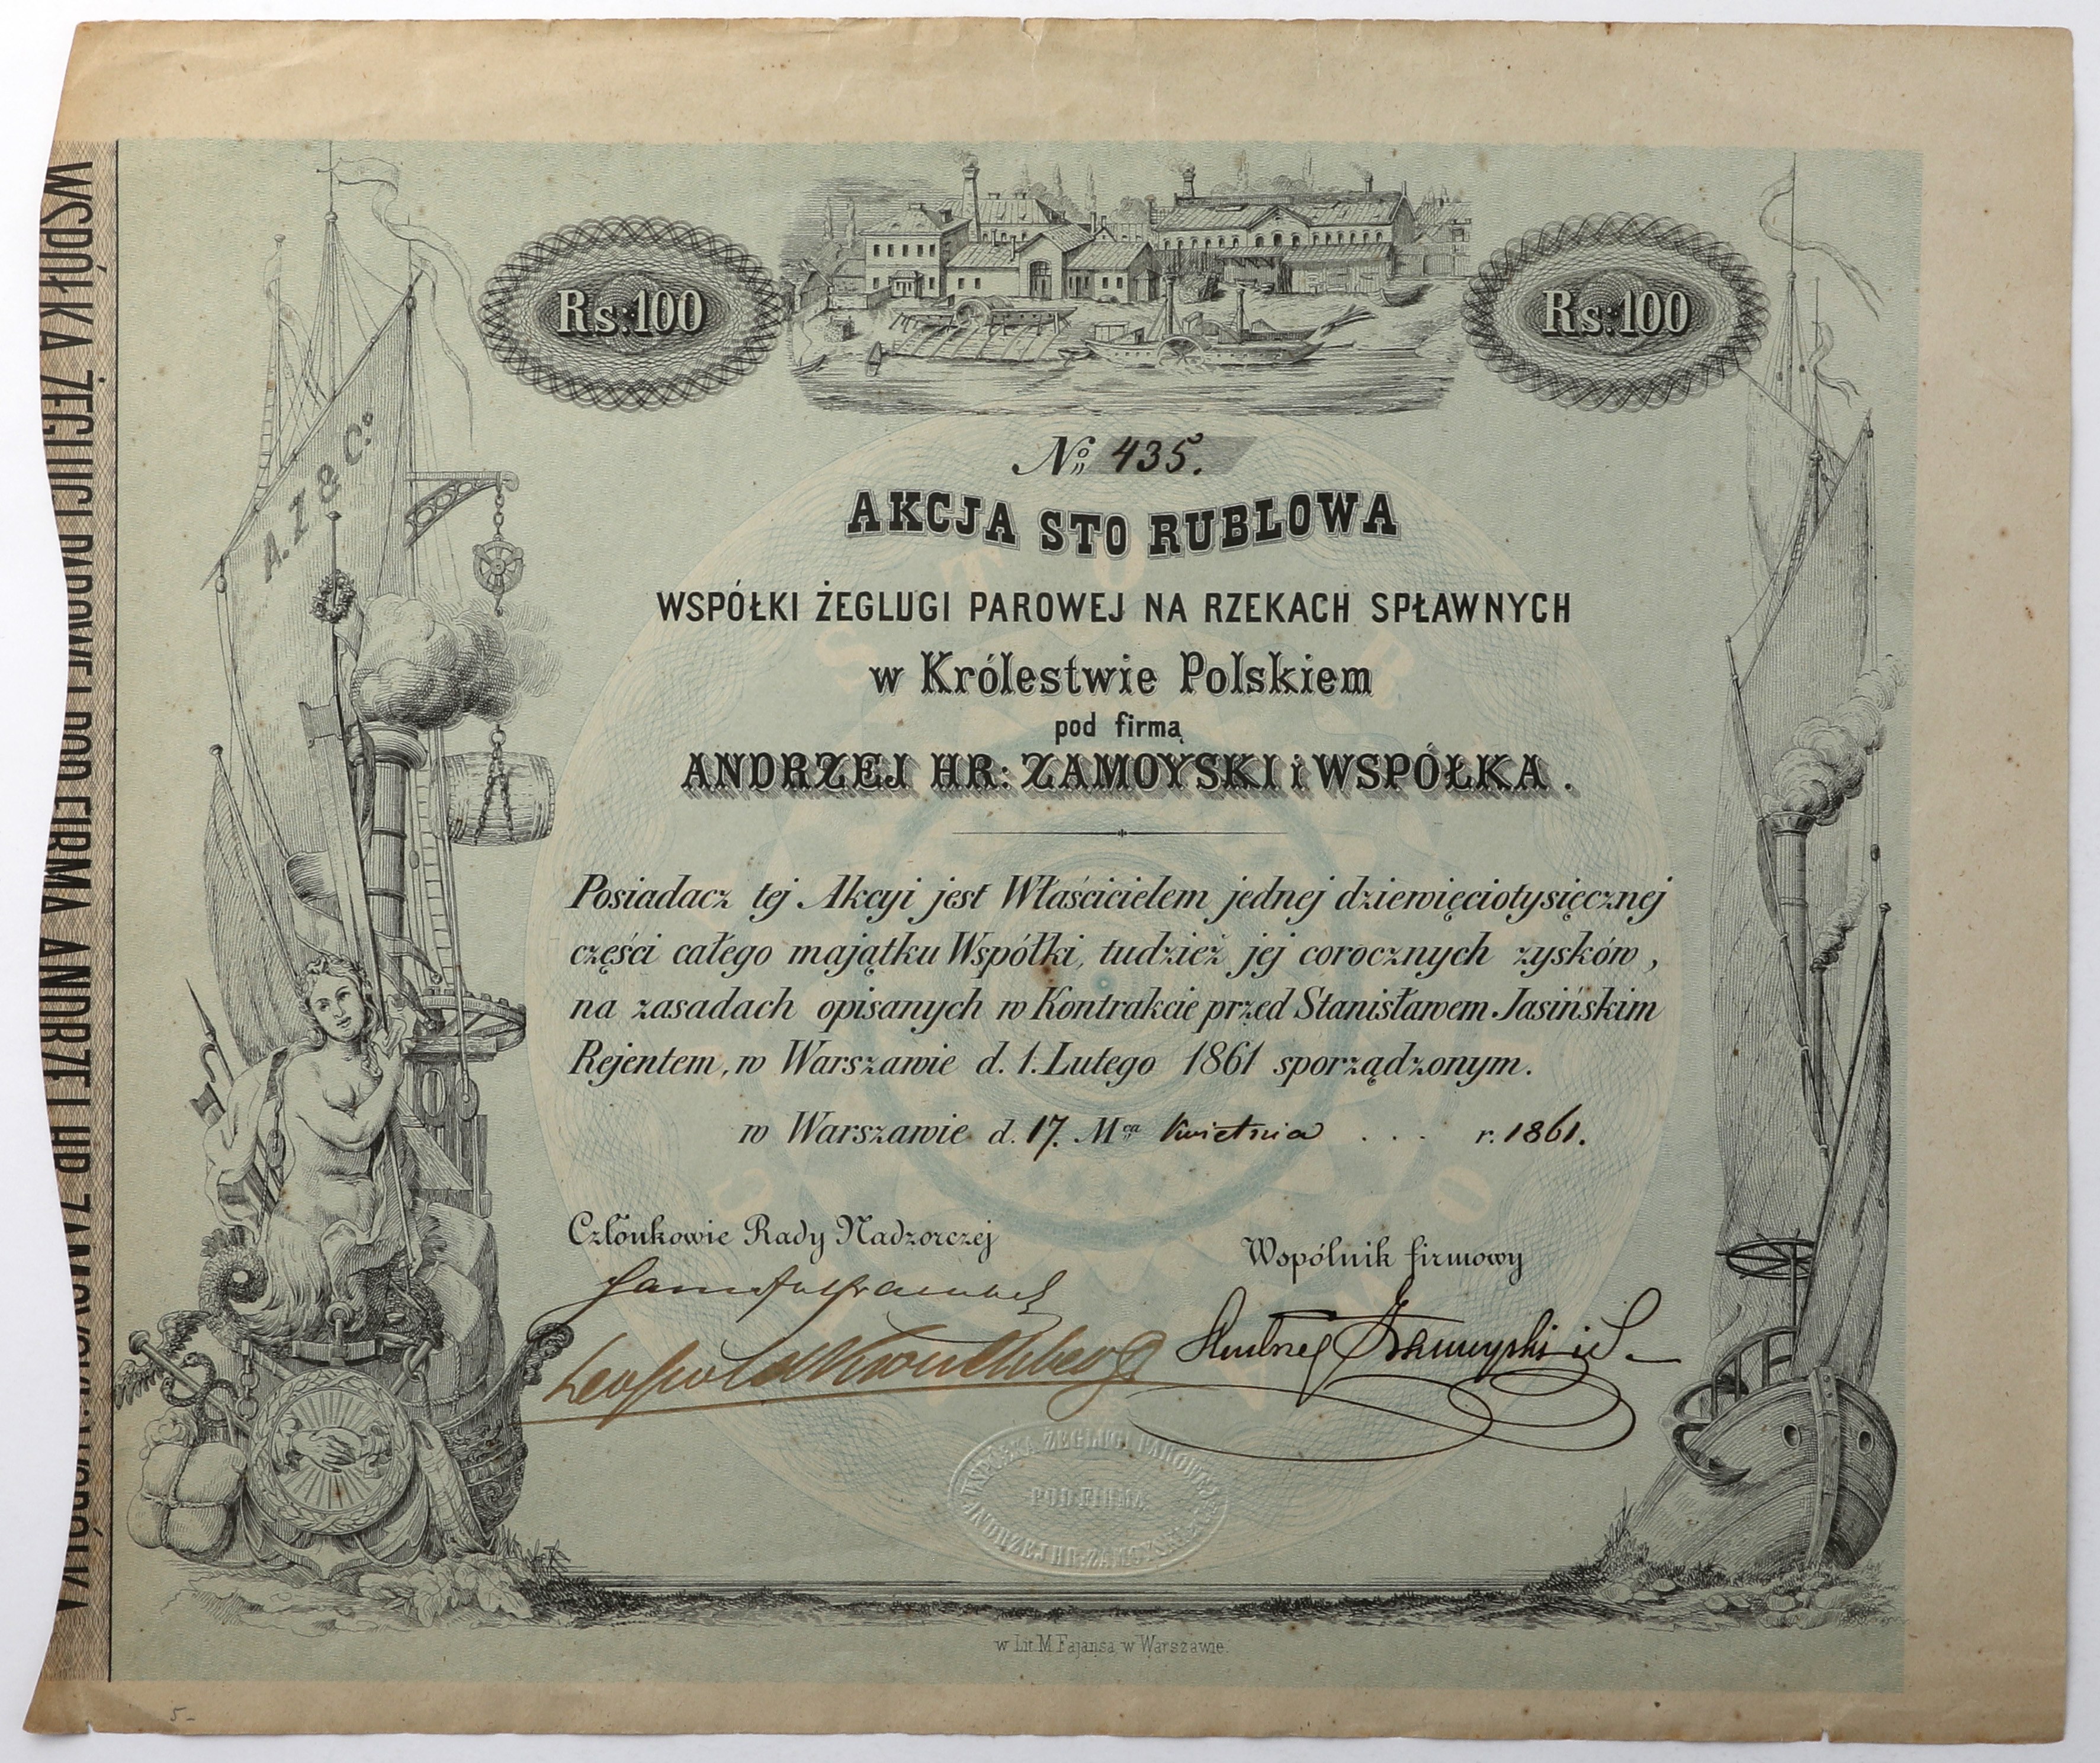 WSPÓŁKA ŻEGLUGI PAROWEJ POD FIRMĄ ANDRZEJ HR: ZAMOYSKI i WSPÓŁKA
Rs:100
Rs:100
A. Z & Co.
No 435.
AKCJA STO RUBLOWA
WSPÓŁKI ŻEGLUGI PAROWEJ NA RZEKACH SPŁAWNYCH
w Królestwie Polskiem
pod firmą
ANDRZEJ HR: ZAMOYSKI i WSPÓŁKA.
Posiadacz tej Akcyi jest Właścicielem jednej dziewięciotysięcznej
części całego majątku Wspólki, tudzież jej corocznych zysków,
na zasadach opisanych w Kontrakcie przed Stanisławem Jasińskim
Rejentem, w Warszawie d. 1. Lutego 1861 sporządzonym.
w Warszawie d. 17. Mca Kwietnia . . . r. 1861.
Członkowie Rady Nadzorczej
Wspólnik firmowy
Leopold Kronenberg
Andrzej Zamoyski i S
WSPÓŁKA ŻEGLUGI PAROWEJ
POD FIRMĄ
ANDRZEJ HR: ZAMOYSKI
w Lit. M. Fajansa w Warszawie.
5-